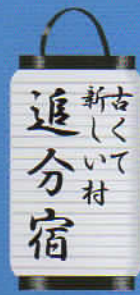 古くて
新しい村
追分宿